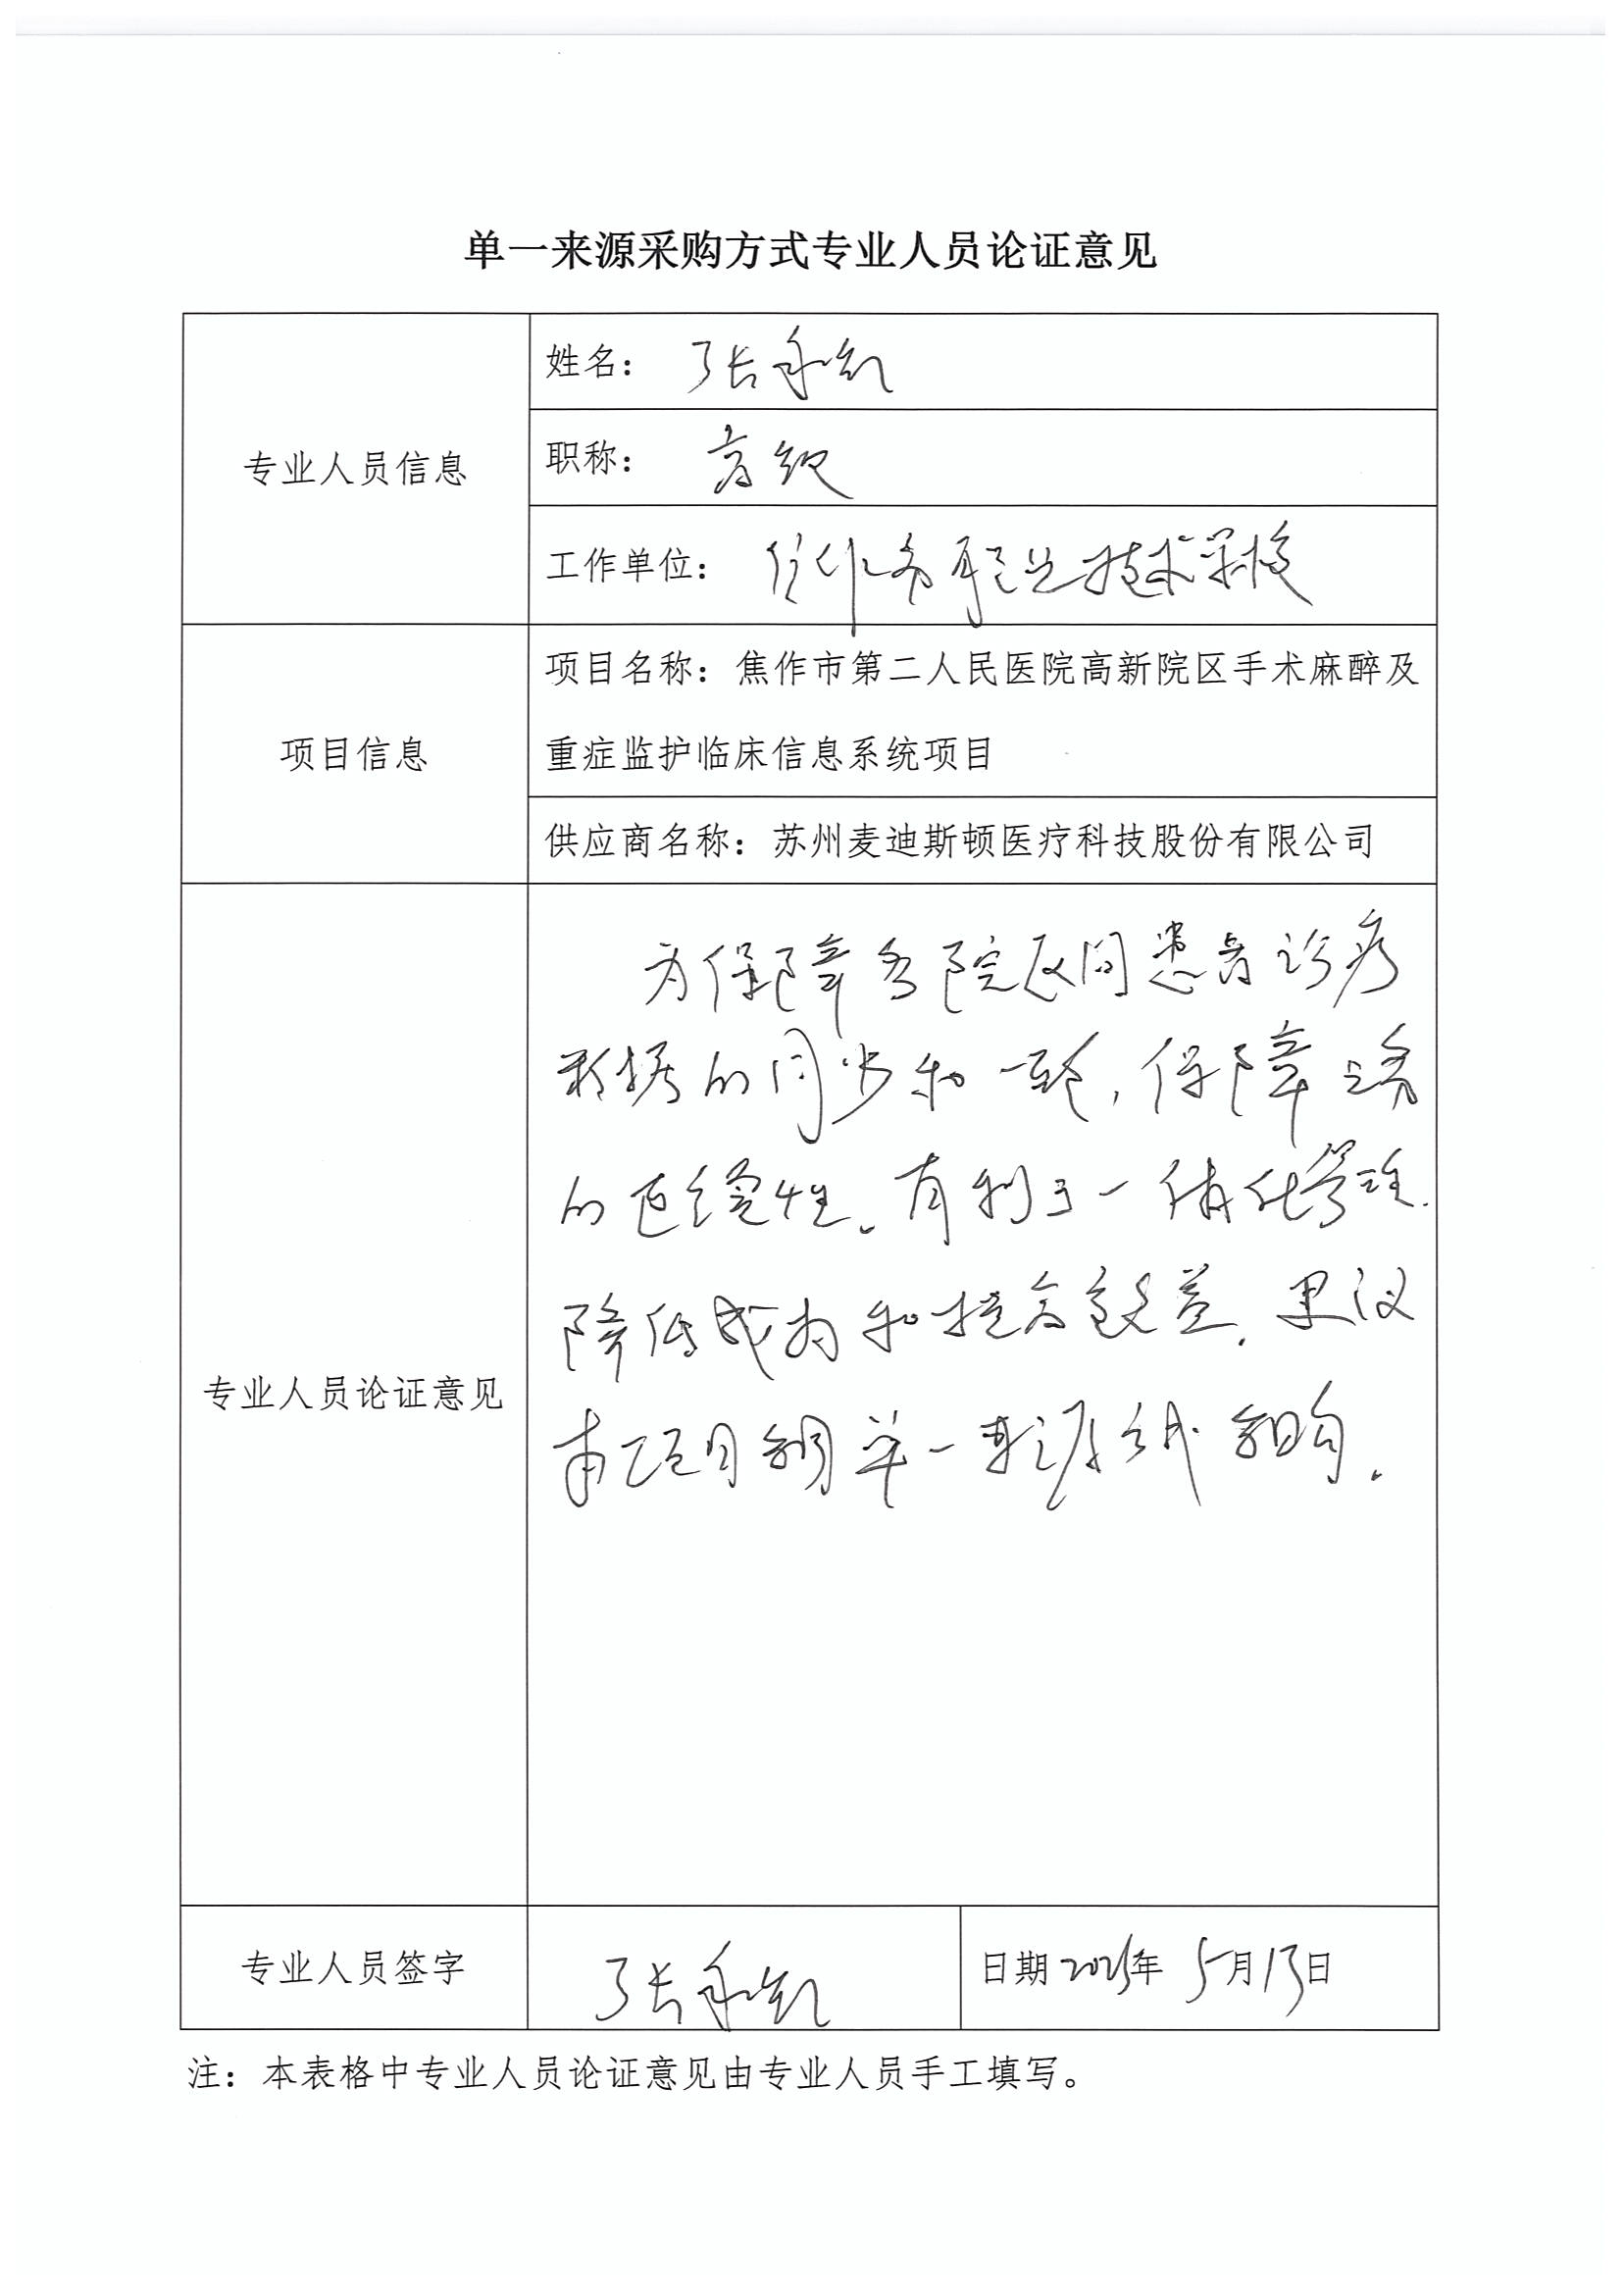 单一来源采购方式专业人员论证意见
专业人员信息
姓名：张永刚
职称：高级
工作单位：焦作市职业技术学校
项目信息
项目名称：焦作市第二人民医院高新院区手术麻醉及
重症监护临床信息系统项目
供应商名称：苏州麦迪斯顿医疗科技股份有限公司
专业人员论证意见
为保障各院区间患者诊疗
数据的同步和一致，保障业务
的连续性。有利于一体化管理.
降低成本和提高效益，建议
本项目采用单一来源方式采购.
专业人员签字
日期2025年 5月13日
注：本表格中专业人员论证意见由专业人员手工填写。